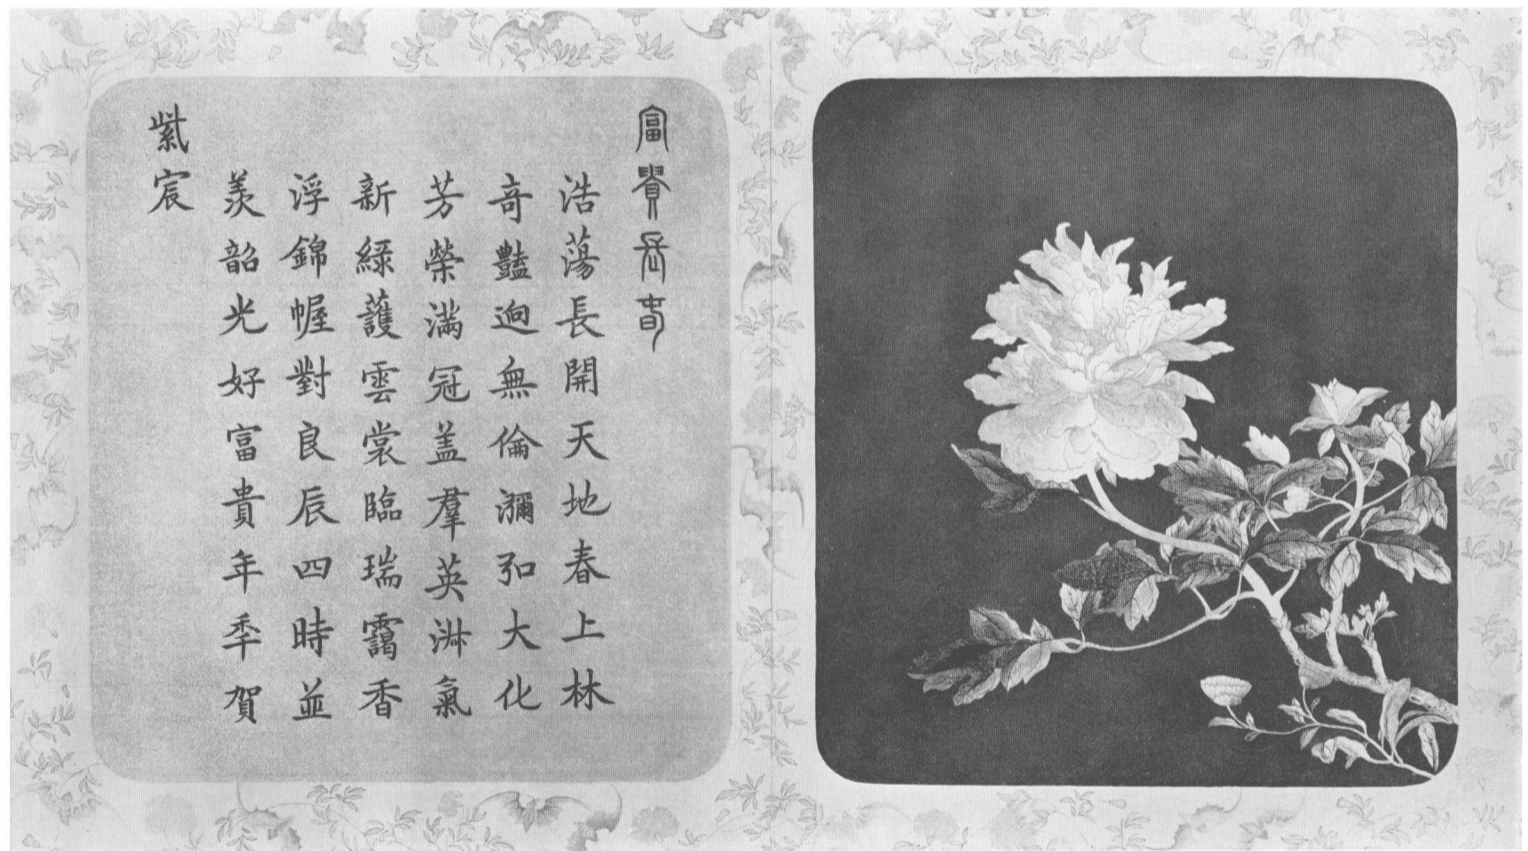 富貴長春
浩蕩長開天地春上林
奇豔逈無倫瀰弘大化
芳榮滿冠盖羣英淋氣
新緑護雲裳臨瑞靄香
浮錦幄對良辰四時並
羨韶光好富貴年年賀
紫宸